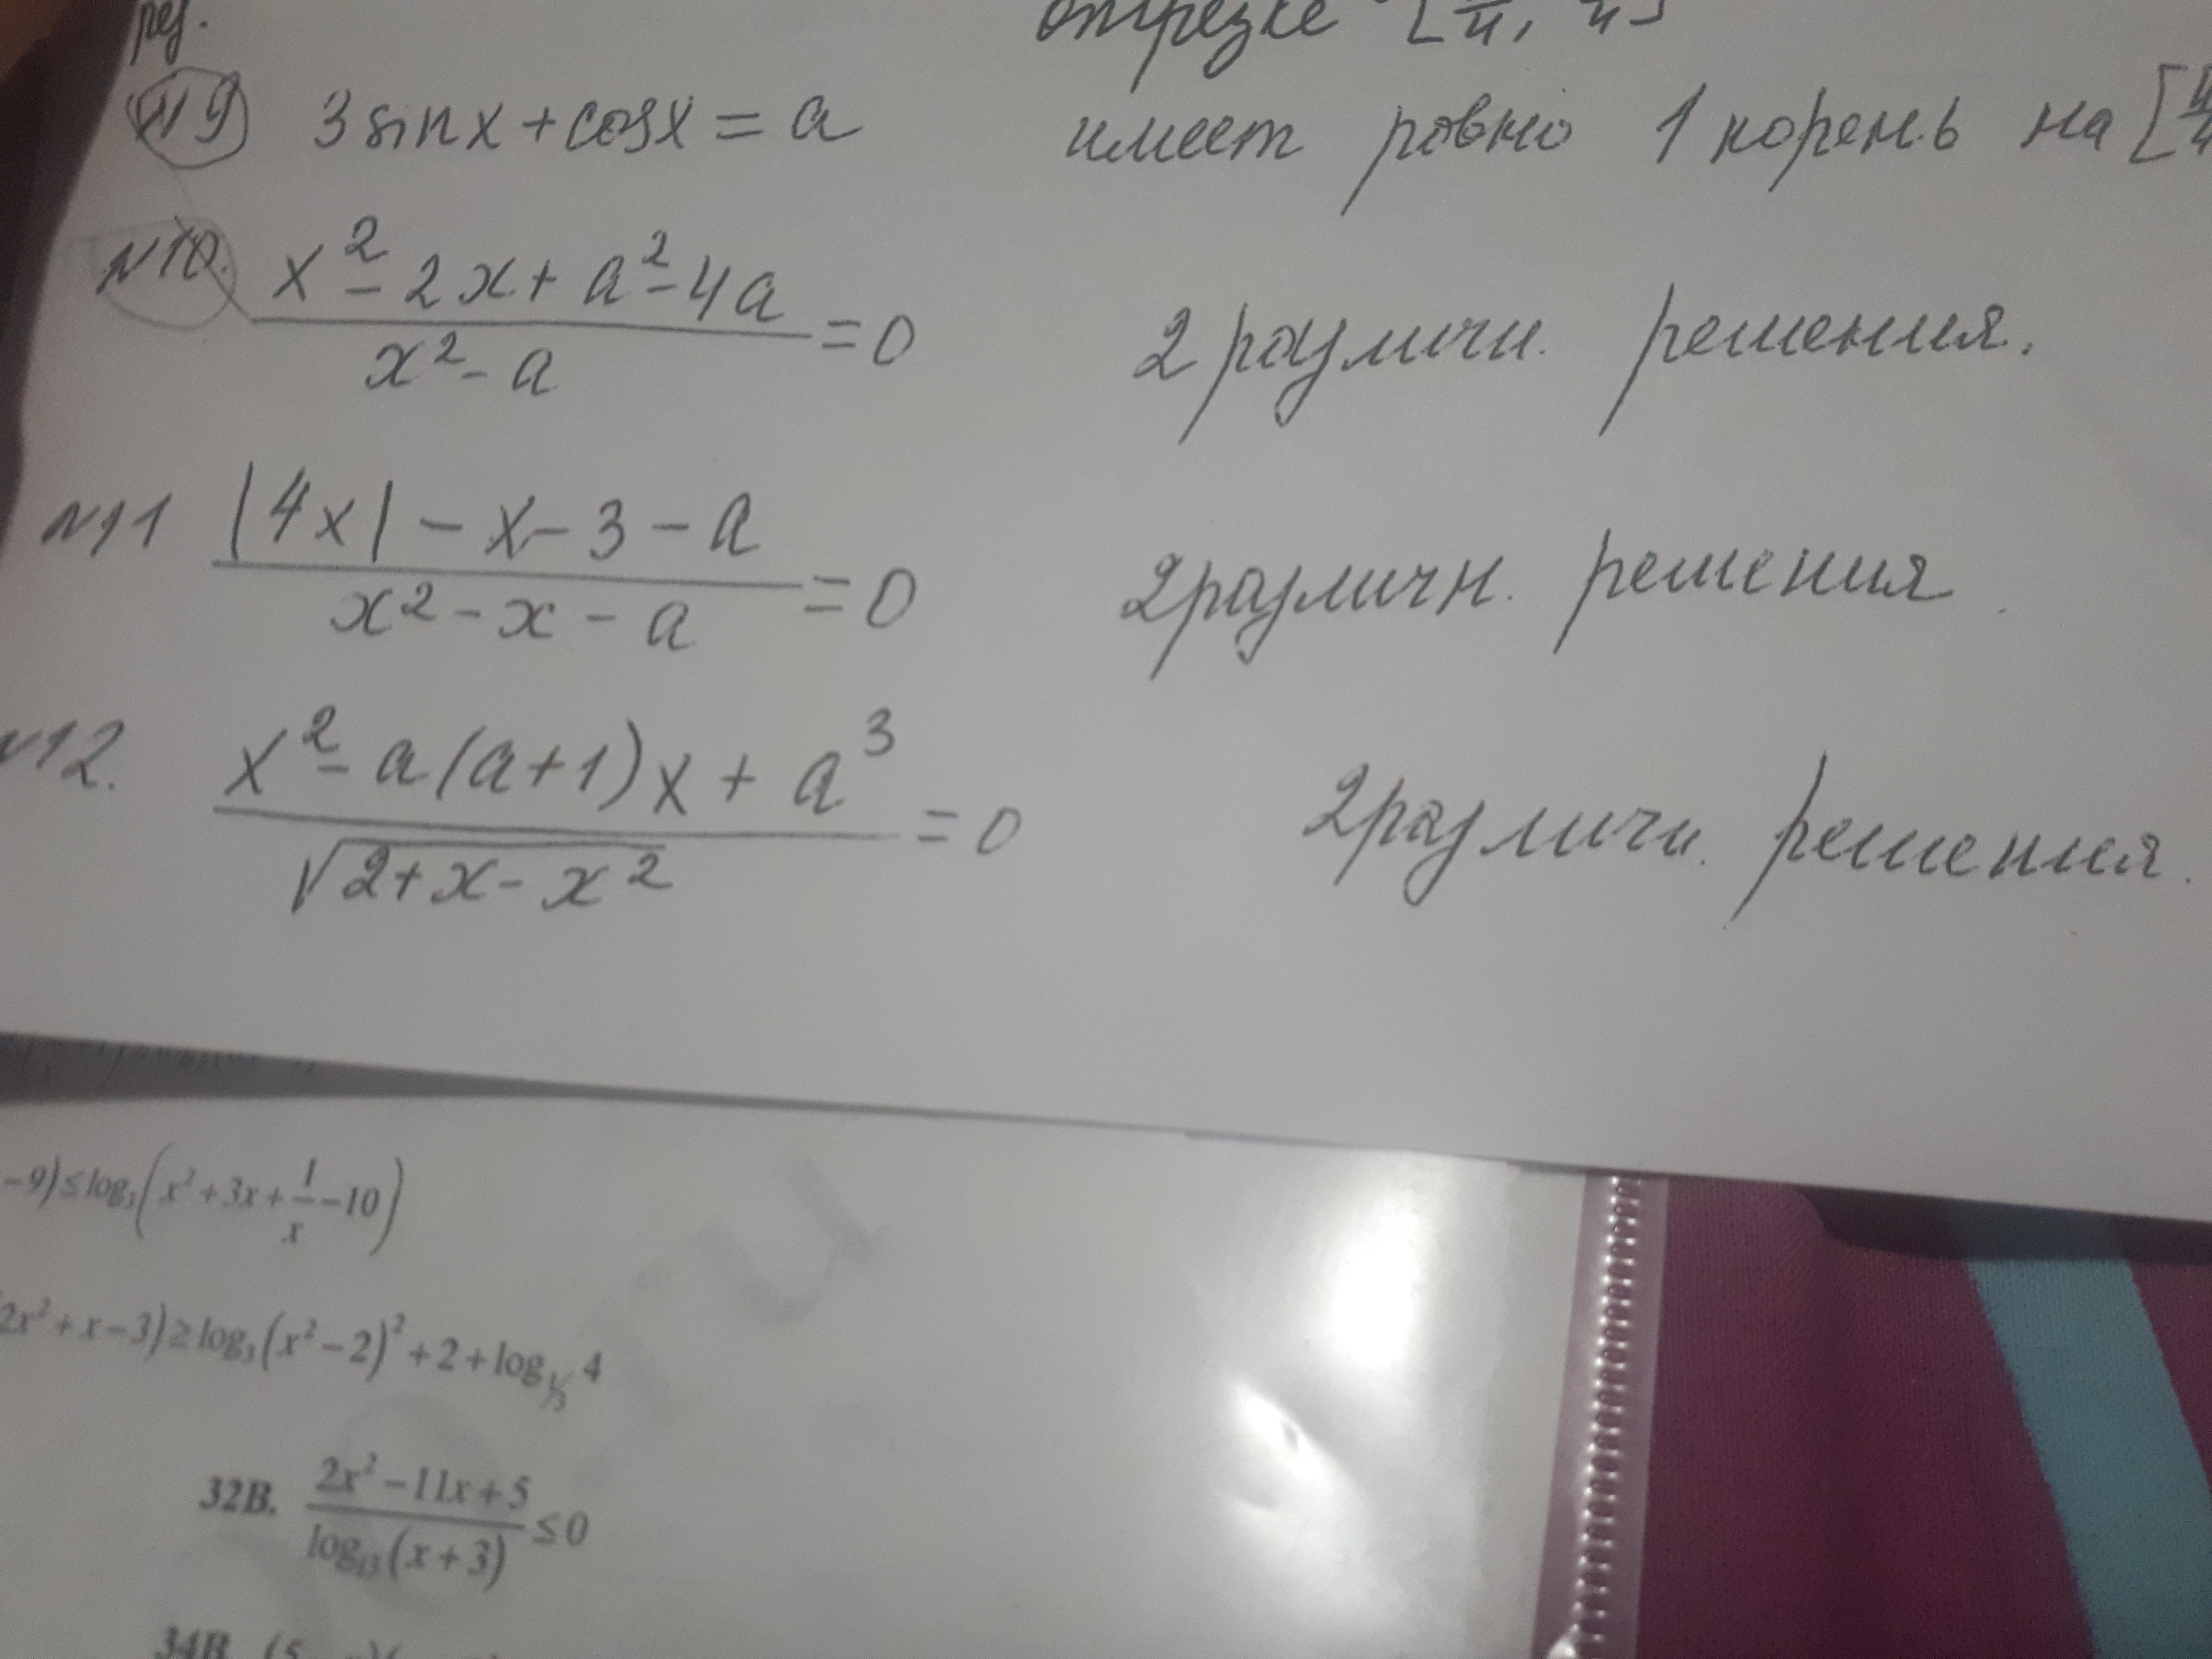 рез. отрезке
№9 3sinx+cosx=a имеет ровно 1 корень на
№10. (x²-2x+a²-4a)/(x²-a)=0 2 различн. решения.
№11 (|4x|-x-3-a)/(x²-x-a)=0 2 различн. решения.
№12. (x²-a(a+1)x+a³)/√(2+x-x²)=0 2 различн. решения.
-9)≤log₃(x²+3x+1/x-10)
2x²+x-3)≥log₃(x²-2)²+2+log_⅓ 4
32B. (2x²-11x+5)/(log (x+3))≤0
34B. (5